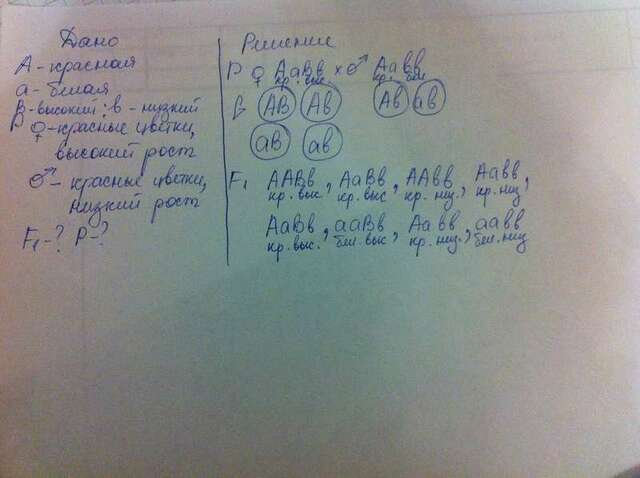 Дано
А - красная
а - белая
В - высокий; в - низкий
Р ♀ - красные цветки,
высокий рост
♂ - красные цветки,
низкий рост
F₁ - ? Р - ?
Решение
Р ♀ АаВв × ♂ Аавв
кр. выс.
G АВ Ав Ав ав
аВ ав
F₁ ААВв, АаВв, ААвв, Аавв,
кр. выс. кр. выс. кр. низ. кр. низ.
АаВв, ааВв, Аавв, аавв
кр. выс. бел. выс кр. низ. бел. низ